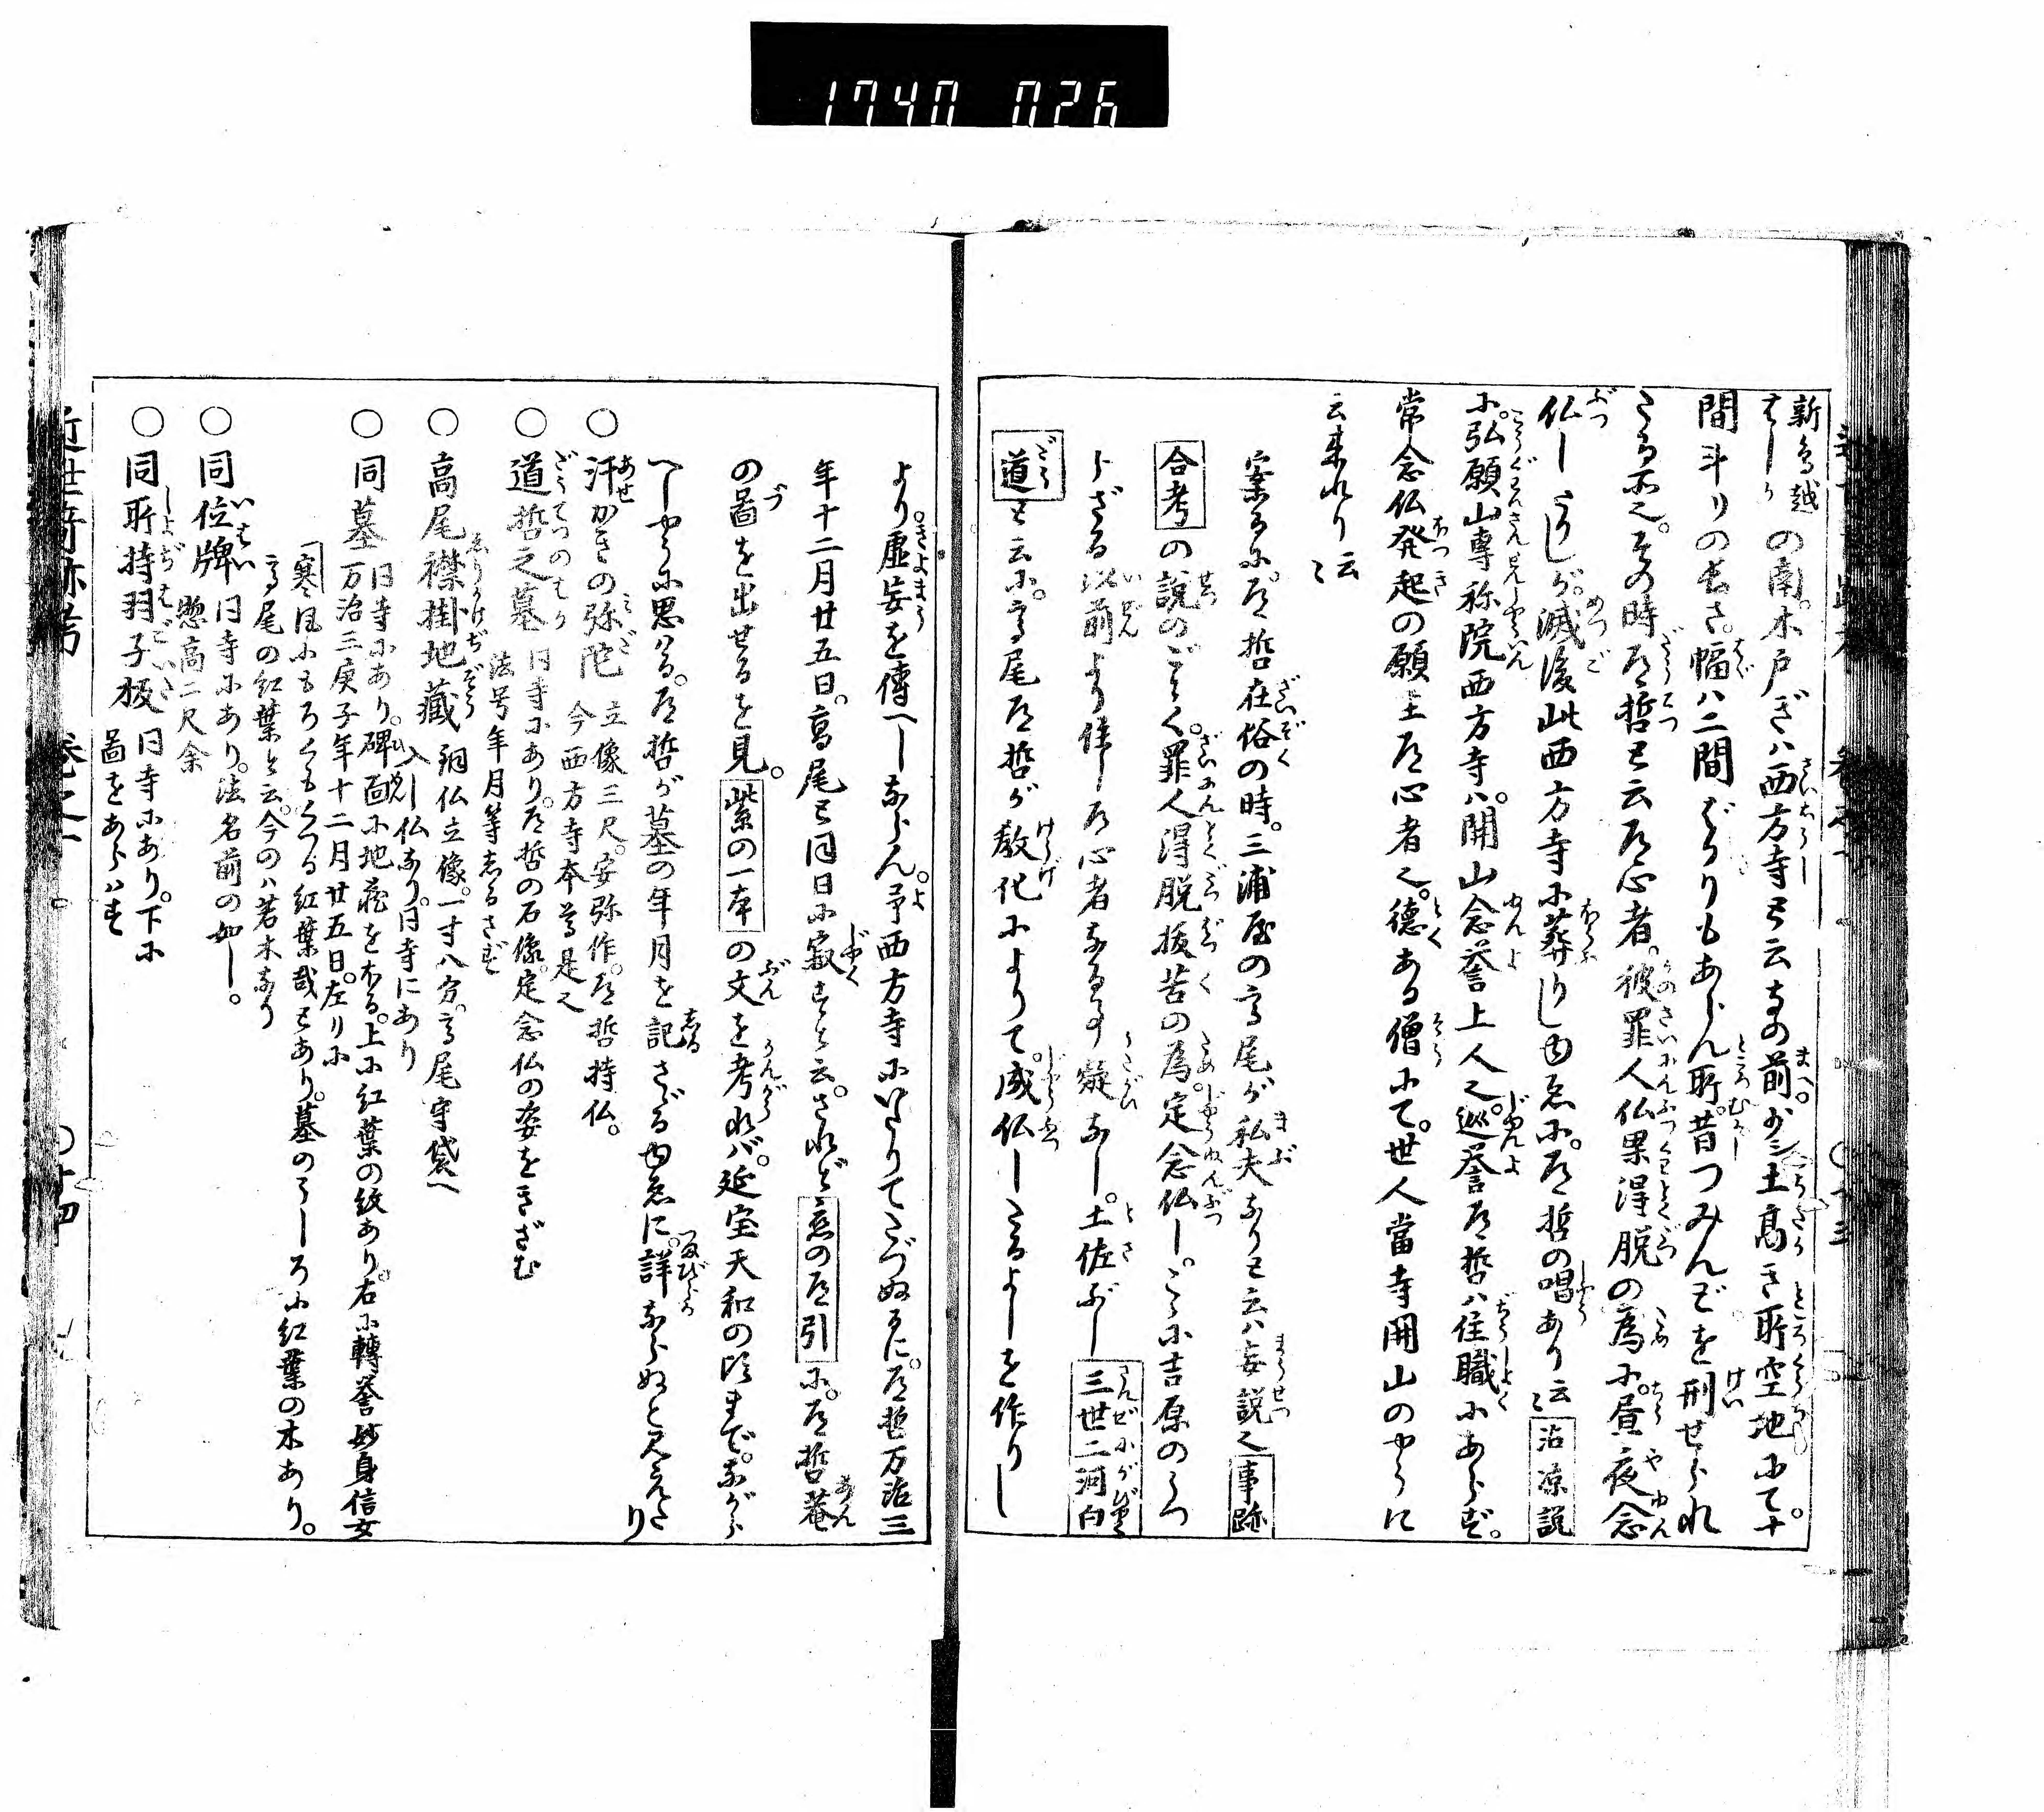 1740 026
新鳥越
はしの南。木戸ぎハ西方寺と云寺の前。少シ土高き所空地にて。十
間斗りの長さ。幅ハ二間ばかりもあらん所。昔つみんどを刑せられ
たる所也。その時道哲と云道心者。彼罪人仏果得脱の為に。昼夜念
仏したりしが。滅後此西方寺に葬りしゆゑに。道哲の唱あり云〻 沾凉説
に。弘願山専称院西方寺ハ。開山念誉上人也。巡誉道哲ハ住職にあらず。
常念仏発起の願主道心者也。徳ある僧にて。世人當寺開山のやうに
云来れり 云〻
案るに。道哲在俗の時。三浦屋の高尾が私夫なりと云ハ妄説也 事跡
合考 の説のごとく。罪人得脱抜苦の為。定念仏し。ことに吉原のうつ
らざる以前より住し道心者なる事疑なし。土佐ぶし 三世二河白
道 と云に。高尾道哲が教化によりて。成仏したるよしを作りし
より虚妄を傳へしならん。予西方寺にいたりてたづぬるに。道哲万治三
年十二月廿五日。高尾と同日に寂すと云。されど 恋の道引 に。道哲菴
の圖を出せるを見。 紫の一本 の文を考れバ。延宝天和の頃まで。ながら
へしやうに思はる。道哲が墓の年月を記さゞるゆゑに。詳ならぬと見えたり
○汗かきの弥陀 立像三尺。安弥作。道哲持仏。
今西方寺本尊是也
○道哲之墓 同寺にあり。道哲の石像。定念仏の姿をきざむ
法号年月等しるさず
○高尾襟掛地藏 銅仏立像。一寸八分。高尾守袋へ
入し仏なり。同寺にあり
○同墓 同寺にあり。碑面に地蔵をほる。上に紅葉の紋あり。右に轉誉妙身信女
万治三庚子年十二月廿五日。左りに
寒風にもろくもくつる紅葉哉とあり。墓のうしろに紅葉の木あり。
高尾の紅葉と云。今のハ若木なり
○同位牌 同寺にあり。法名前の如し。
惣高二尺余
○同所持羽子板 同寺にあり。下に
圖をあらハす
近世奇跡考 巻之一 ○十四